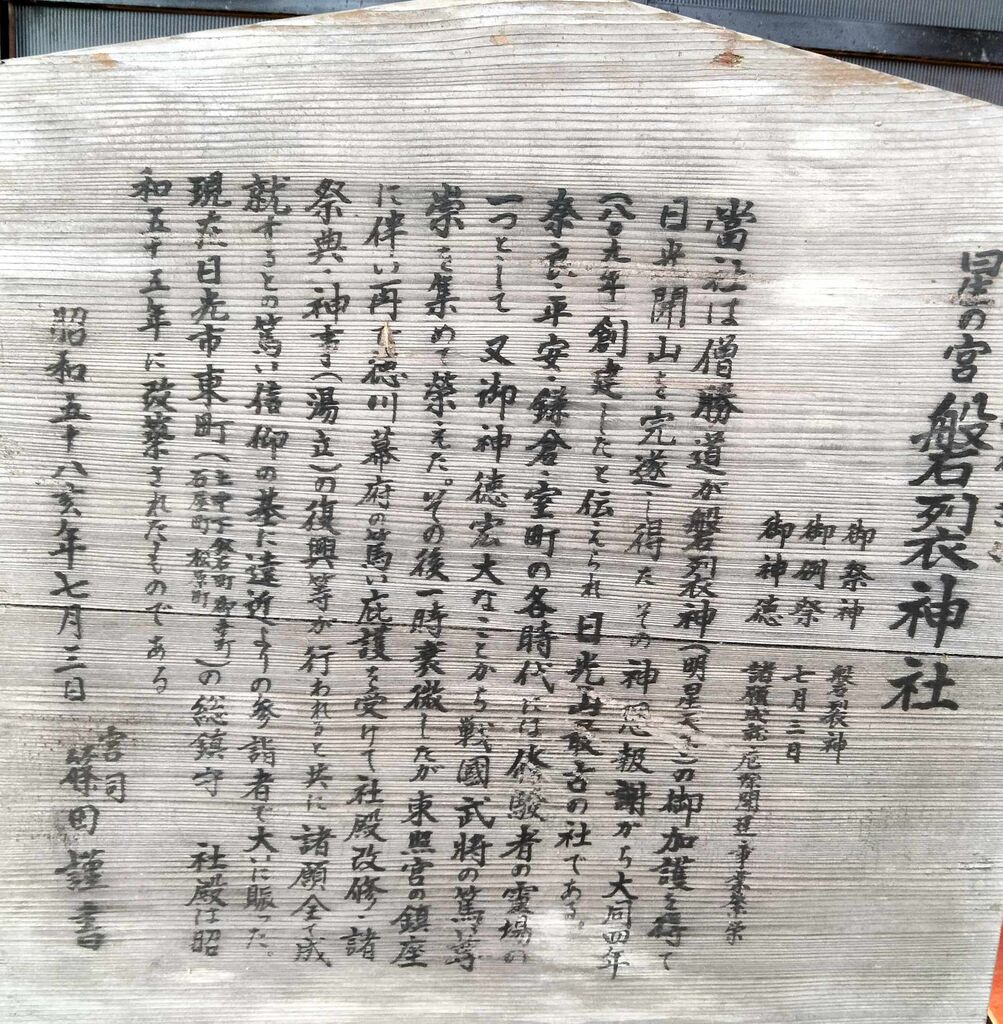 星の宮 磐列衣神社
御祭神 磐裂神
御例祭 七月二日
御神徳 諸願成就 厄除開運 事業繁栄
當社は僧勝道が磐列衣神(明星天子)の御加護を得て
日光開山を完遂し得た その神恩報謝から大同四年
(八〇九年)創建したと伝えられ 日光山最古の社である。
奈良・平安・鎌倉・室町の各時代には修験者の霊場の
一つとして 又御神徳宏大なことから 戦國武将の篤い尊
崇を集めて榮えた。その後一時衰微したが 東照宮の鎮座
に伴い再び徳川幕府の篤い庇護を受けて 社殿改修・諸
祭典・神事(湯立)の復興等が行われると共に 諸願全て成
就するとの篤い信仰の基に遠近よりの参詣者で大いに賑った。
現在日光市東町(上中下鉢石町 御幸町 石屋町 松原町)の総鎮守 社殿は昭
和五十五年に改築されたものである
昭和五十八亥年七月二日 宮司 篠田謹書